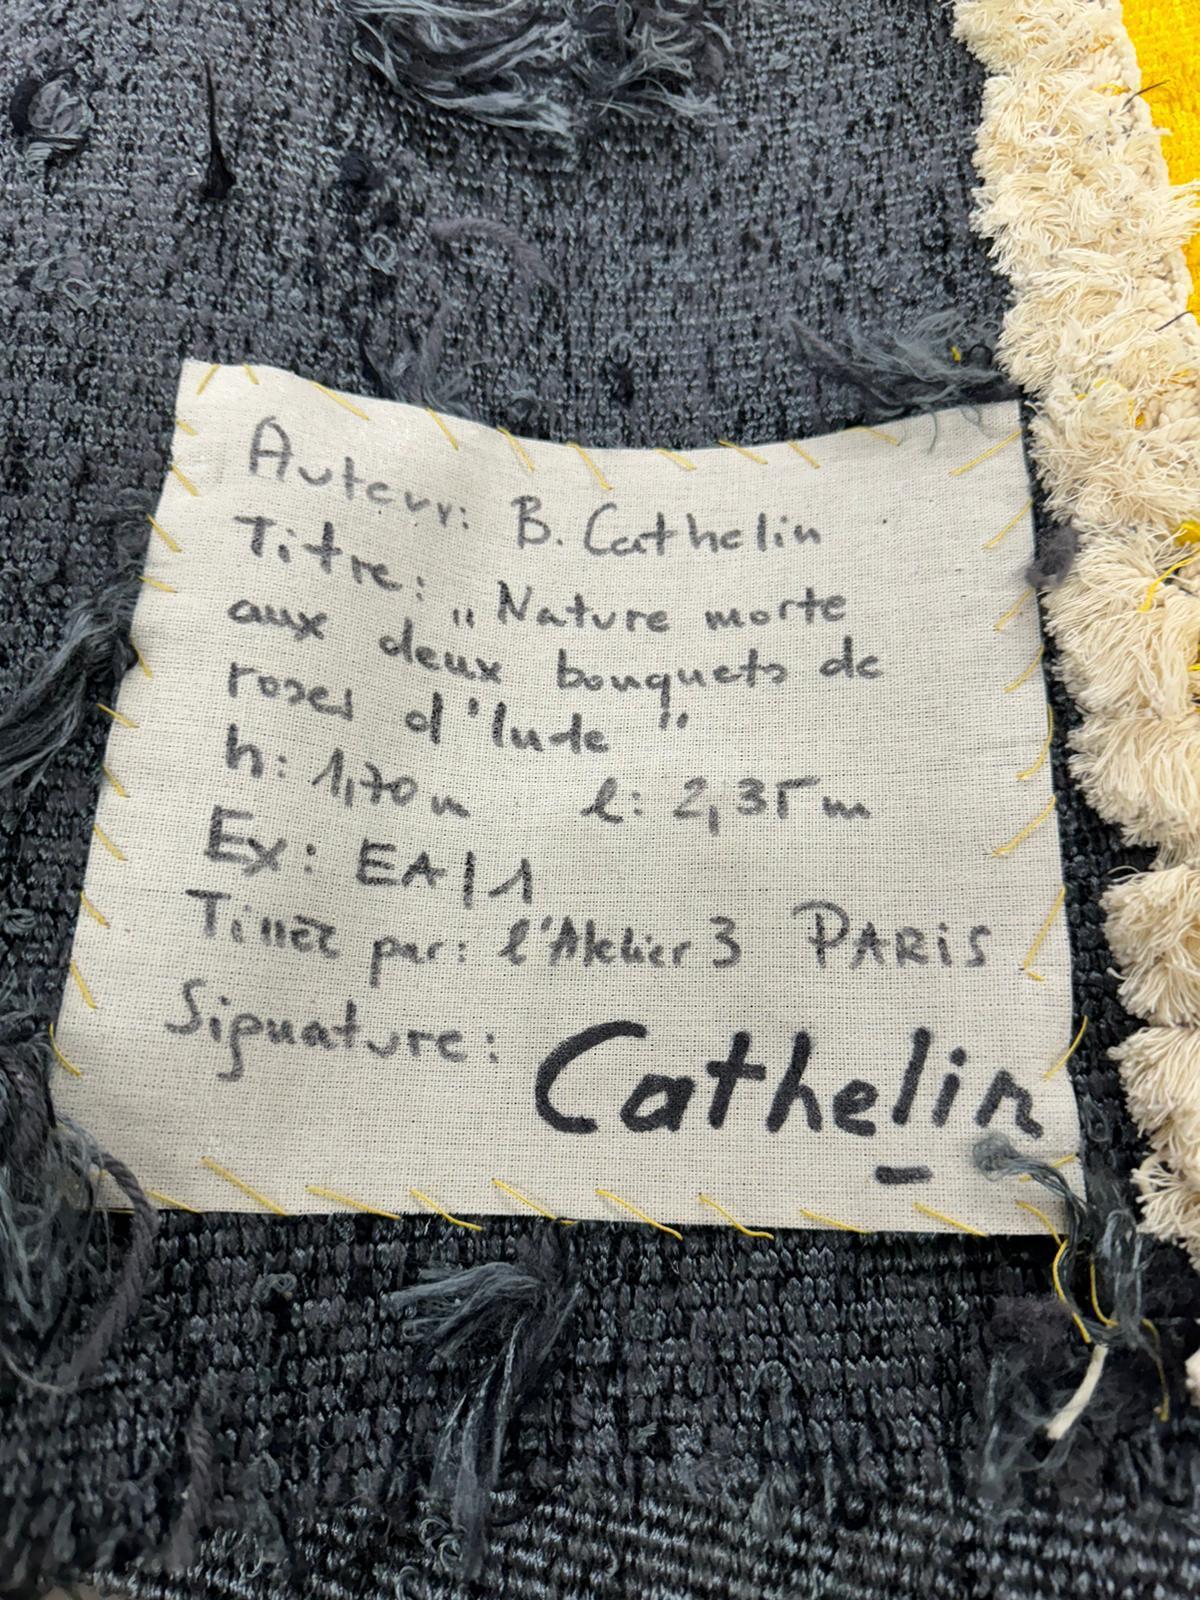 Auteur: B. Cathelin
Titre: „Nature morte
aux deux bouquets de
roses d'Inde"
h: 1,70 m l: 2,35 m
Ex: EA | 1
Tissé par: l'Atelier 3 PARiS
Signature: Cathelin